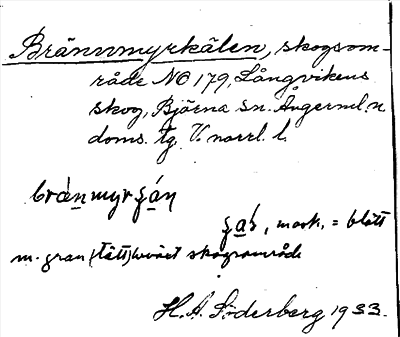 Brännmyrkälen, skogsom-
råde NO 179, Långvikens
skog, Björna sn. Ångerml. n
doms. tg, V. norrl. l.
mask. = blott
m. gran (tätt) beväxt skogsområde
H. A. Söderberg 1933.